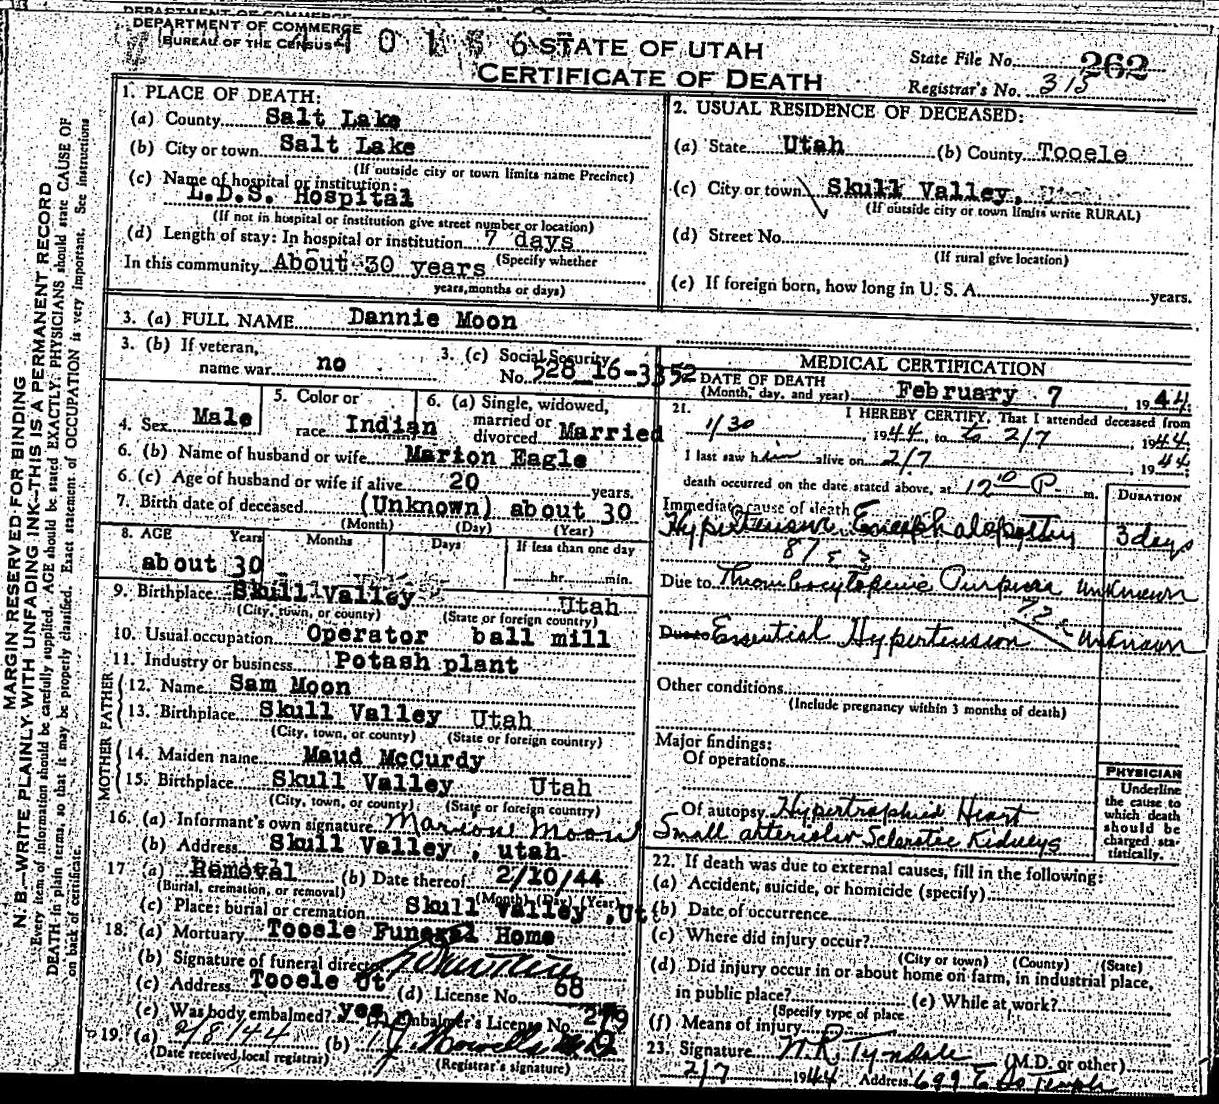 DEPARTMENT OF COMMERCE
BUREAU OF THE CENSUS
STATE OF UTAH
CERTIFICATE OF DEATH
State File No. 262
Registrar's No. 315
MARGIN RESERVED FOR BINDING
N. B.—WRITE PLAINLY WITH UNFADING INK—THIS IS A PERMANENT RECORD
Every item of information should be carefully supplied. AGE should be stated EXACTLY. PHYSICIANS should state CAUSE OF
DEATH in plain terms, so that it may be properly classified. Exact statement of OCCUPATION is very important. See instructions
on back of certificate.
1. PLACE OF DEATH:
(a) County Salt Lake
(b) City or town Salt Lake
(If outside city or town limits name Precinct)
(c) Name of hospital or institution:
L.D.S. Hospital
(If not in hospital or institution give street number or location)
(d) Length of stay: In hospital or institution 7 days
(Specify whether
In this community About 30 years
years, months or days)
2. USUAL RESIDENCE OF DECEASED:
(a) State Utah (b) County Tooele
(c) City or town Skull Valley,
(If outside city or town limits write RURAL)
(d) Street No.
(If rural give location)
(e) If foreign born, how long in U. S. A. years.
3. (a) FULL NAME Dannie Moon
3. (b) If veteran,
name war no
3. (c) Social Security
No. 528 16-3352
4. Sex Male
5. Color or
race Indian
6. (a) Single, widowed,
married or
divorced Married
6. (b) Name of husband or wife Marion Eagle
6. (c) Age of husband or wife if alive 20 years.
7. Birth date of deceased (Unknown) about 30
(Month) (Day) (Year)
8. AGE Years Months Days If less than one day
about 30 hr. min.
9. Birthplace Skull Valley Utah
(City, town, or county) (State or foreign country)
10. Usual occupation Operator ball mill
11. Industry or business Potash plant
FATHER
12. Name Sam Moon
13. Birthplace Skull Valley Utah
(City, town, or county) (State or foreign country)
MOTHER
14. Maiden name Maud McCurdy
15. Birthplace Skull Valley Utah
(City, town, or county) (State or foreign country)
16. (a) Informant's own signature Marion Moon
(b) Address Skull Valley, utah
17. (a) Removal (b) Date thereof 2/10/44
(Burial, cremation, or removal) (Month) (Day) (Year)
(c) Place: burial or cremation Skull Valley, Ut
18. (a) Mortuary Tooele Funeral Home
(b) Signature of funeral director
(c) Address Tooele Ut (d) License No. 68
(e) Was body embalmed? yes (f) Embalmer's License No. 279
19. (a) 2/8/44 (b)
(Date received local registrar) (Registrar's signature)
MEDICAL CERTIFICATION
20. DATE OF DEATH
(Month, day, and year) February 7 1944
21. I HEREBY CERTIFY, That I attended deceased from
1/30 1944, to to 2/7, 1944
I last saw him alive on 2/7, 1944
death occurred on the date stated above, at 12 10 P. m.
DURATION
Immediate cause of death
Hypertensive Encephalopathy 3 days
Due to Thrombocytopenic Purpura unknown
Due to Essential Hypertension unknown
Other conditions
(Include pregnancy within 3 months of death)
Major findings:
Of operations
Of autopsy Hypertrophied Heart
Small arteriolar Sclerotic Kidneys
PHYSICIAN
Underline
the cause to
which death
should be
charged sta-
tistically.
22. If death was due to external causes, fill in the following:
(a) Accident, suicide, or homicide (specify)
(b) Date of occurrence
(c) Where did injury occur?
(City or town) (County) (State)
(d) Did injury occur in or about home on farm, in industrial place,
in public place? (e) While at work?
(Specify type of place
(f) Means of injury
23. Signature W.R. Tyndale (M.D. or other)
2/7 1944 Address 699 E So Temple